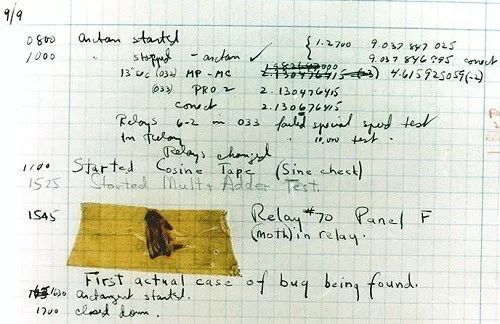 9/9
0800 Antan started { 1.2700 9.037 847 025
1000 " stopped - antan ✓ 9.037 846 995 correct
13" uc (032) MP - MC 2.130476415 (-3) 4.615925059(-2)
(033) PRO 2 2.130476415
correct 2.130676415
Relays 6-2 in 033 failed special speed test
In Relay " 10,000 test .
Relays changed
1100 Started Cosine Tape (Sine check)
1525 Started Mult + Adder Test.
1545 Relay #70 Panel F
(moth) in relay.
First actual case of bug being found.
1630 antangent started.
1700 closed down.